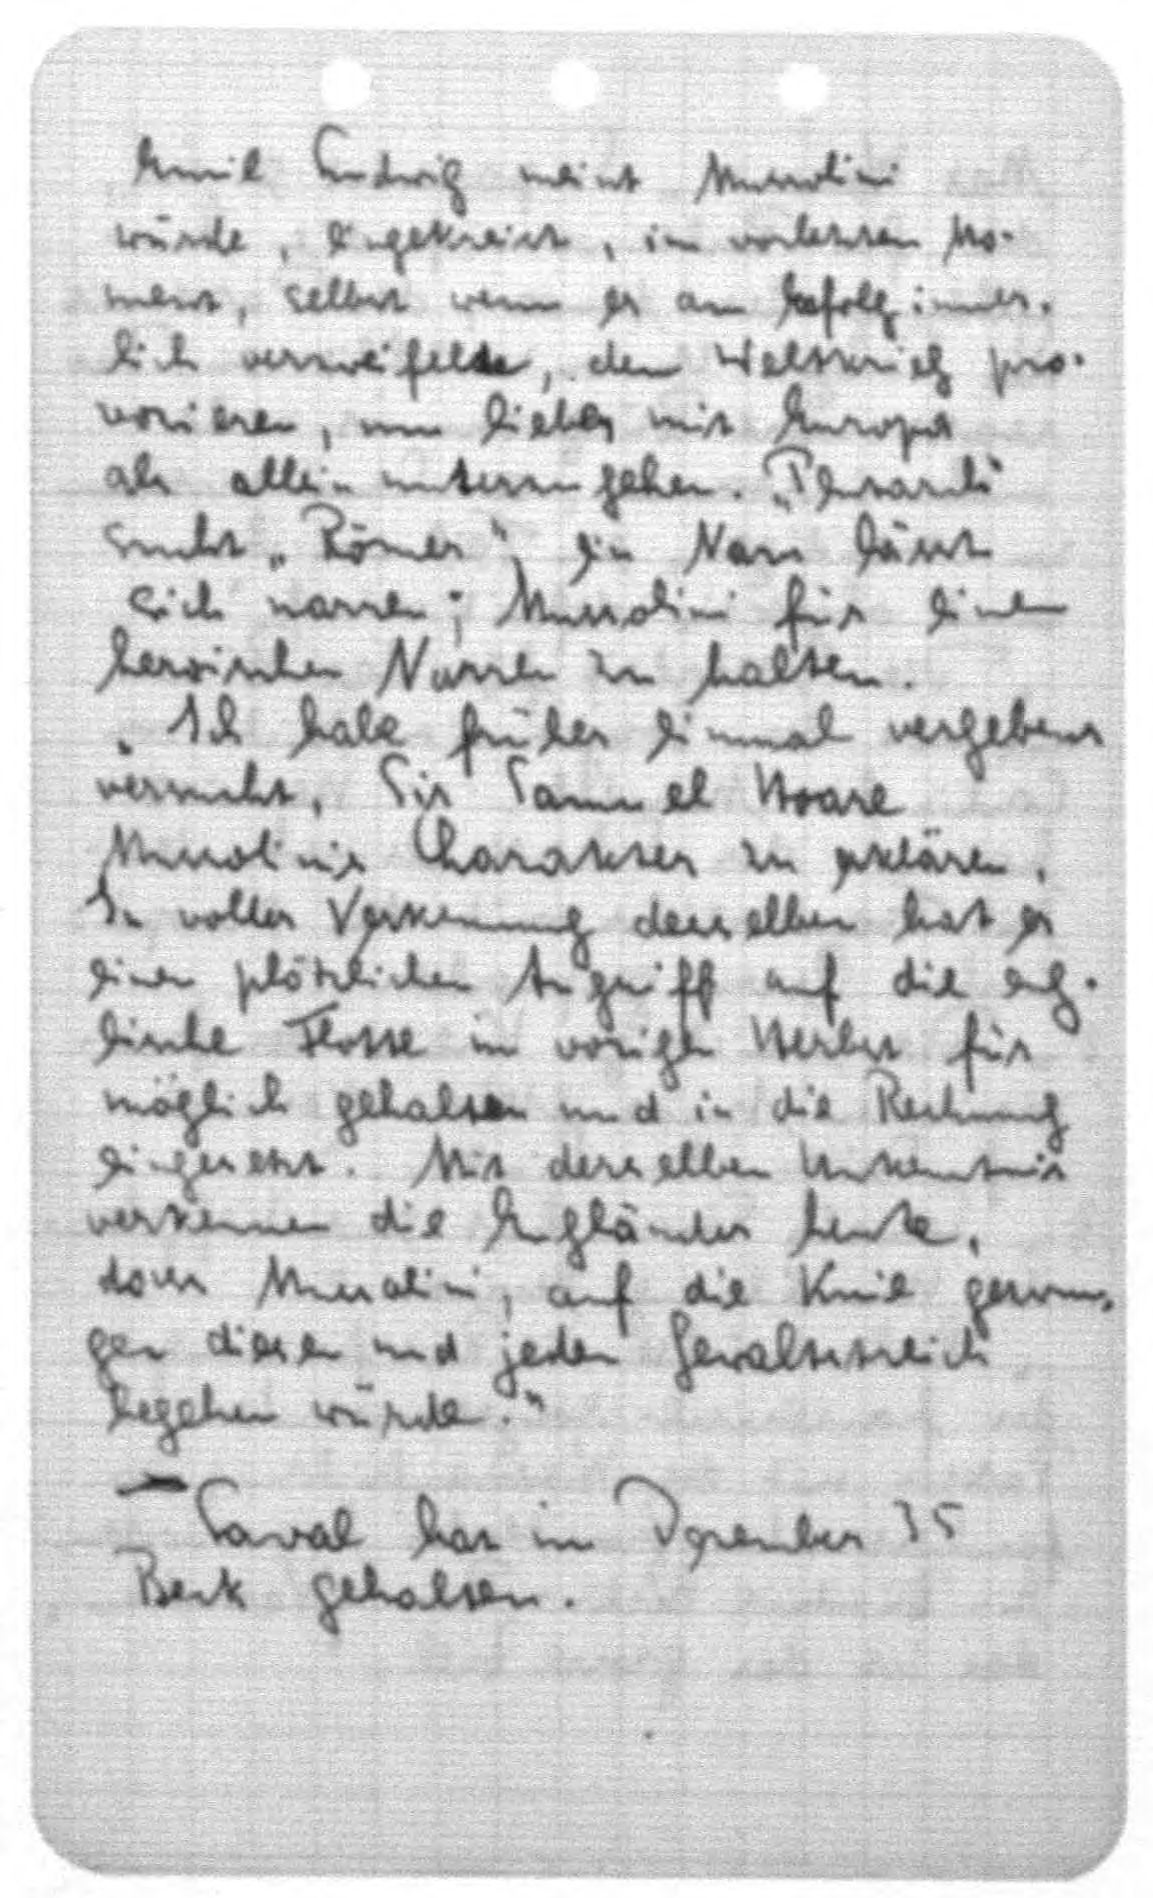 Emil Ludwig meint Mussolini
würde, eingekreist, im vorletzten Mo-
ment, selbst wenn er am Erfolg inner-
lich verzweifelte, den Weltkrieg pro-
vozieren, um lieber mit Europa
als allein unterzugehen.
sucht „Römer“, ein Narr lässt
sich narren; Mussolini für einen
heroischen Narren zu halten.
„Ich habe früher einmal vergebens
versucht, Sir Samuel Hoare
Mussolinis Charakter zu erklären.
In voller Verkennung desselben hat er
einen plötzlichen Angriff auf die eng-
lische Flotte im vorigen Herbst für
möglich gehalten und in die Rechnung
eingesetzt. Mit derselben Unkenntnis
verkennen die Engländer heute,
dass Mussolini, auf die Knie gezwun-
gen diesen und jeden Gewaltstreich
begehen würde.“
— Laval hat im Dezember 35
gehalten.